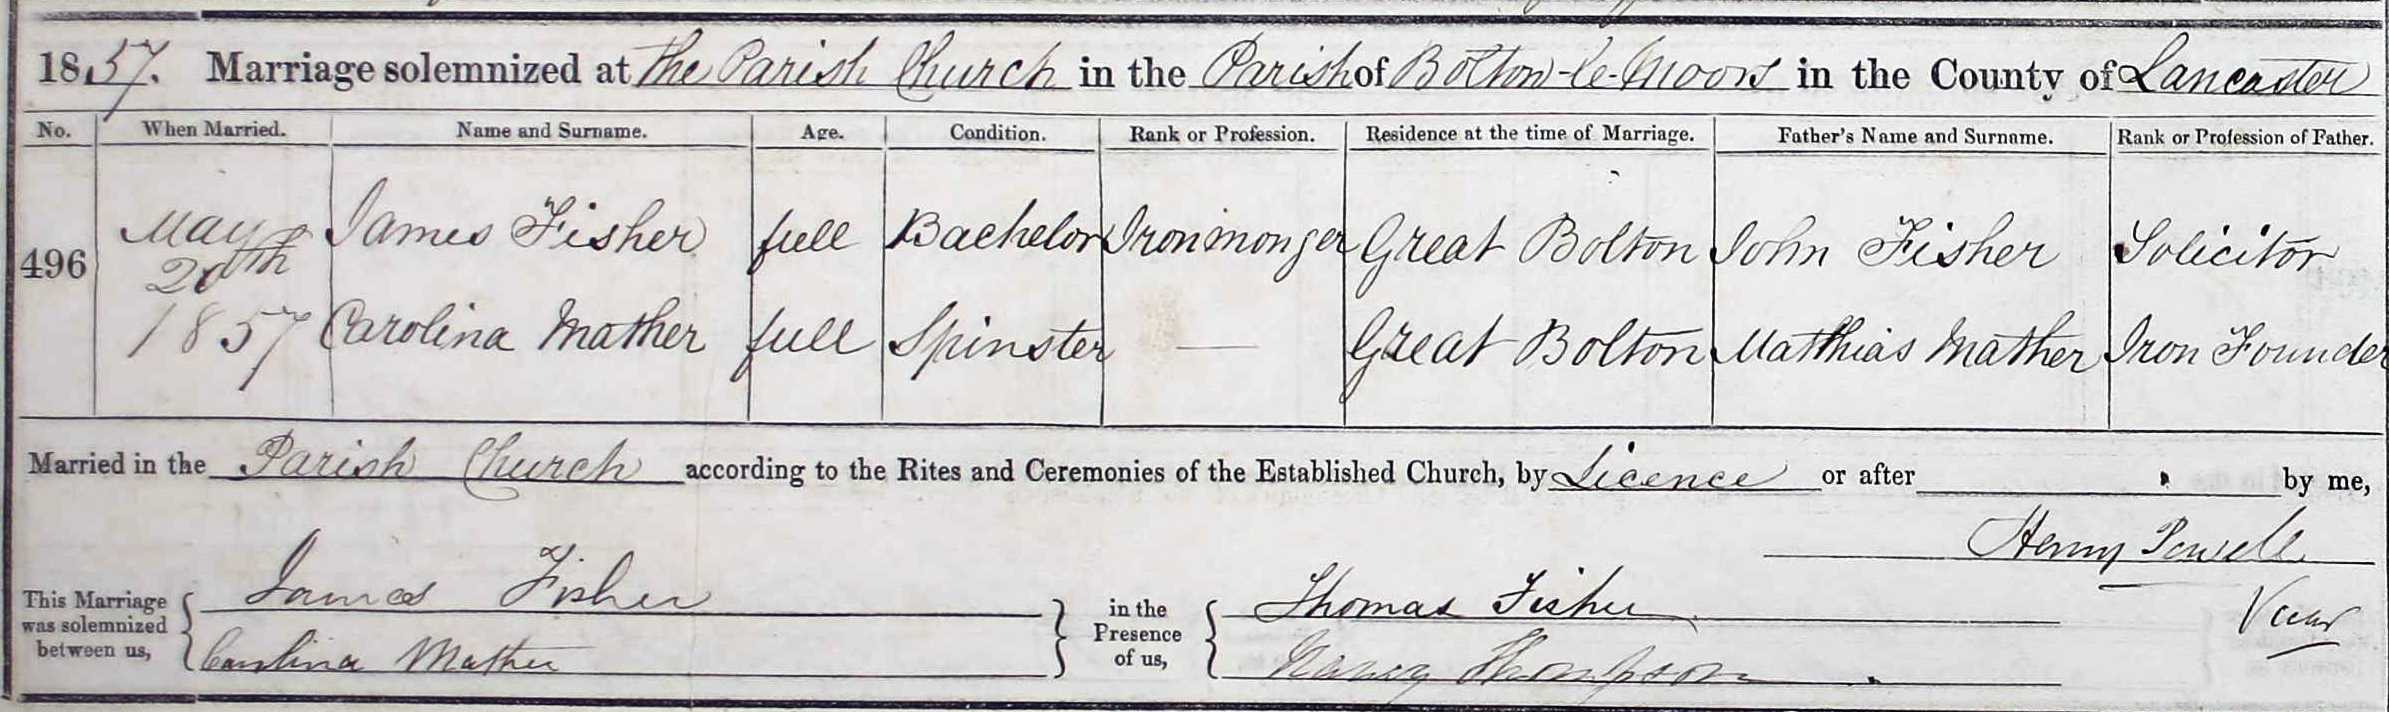 1857. Marriage solemnized at the Parish Church in the Parish of Bolton-le-Moors in the County of Lancaster
No. When Married. Name and Surname. Age. Condition. Rank or Profession. Residence at the time of Marriage. Father's Name and Surname. Rank or Profession of Father.
496 May 20th 1857 James Fisher full Bachelor Ironmonger Great Bolton John Fisher Solicitor
Carolina Mather full Spinster — Great Bolton Matthias Mather Iron Founder
Married in the Parish Church according to the Rites and Ceremonies of the Established Church, by Licence or after by me,
Henry Powell
Vicar
This Marriage was solemnized between us, { James Fisher } in the Presence of us, { Thomas Fisher
Carolina Mather Nancy Thompson